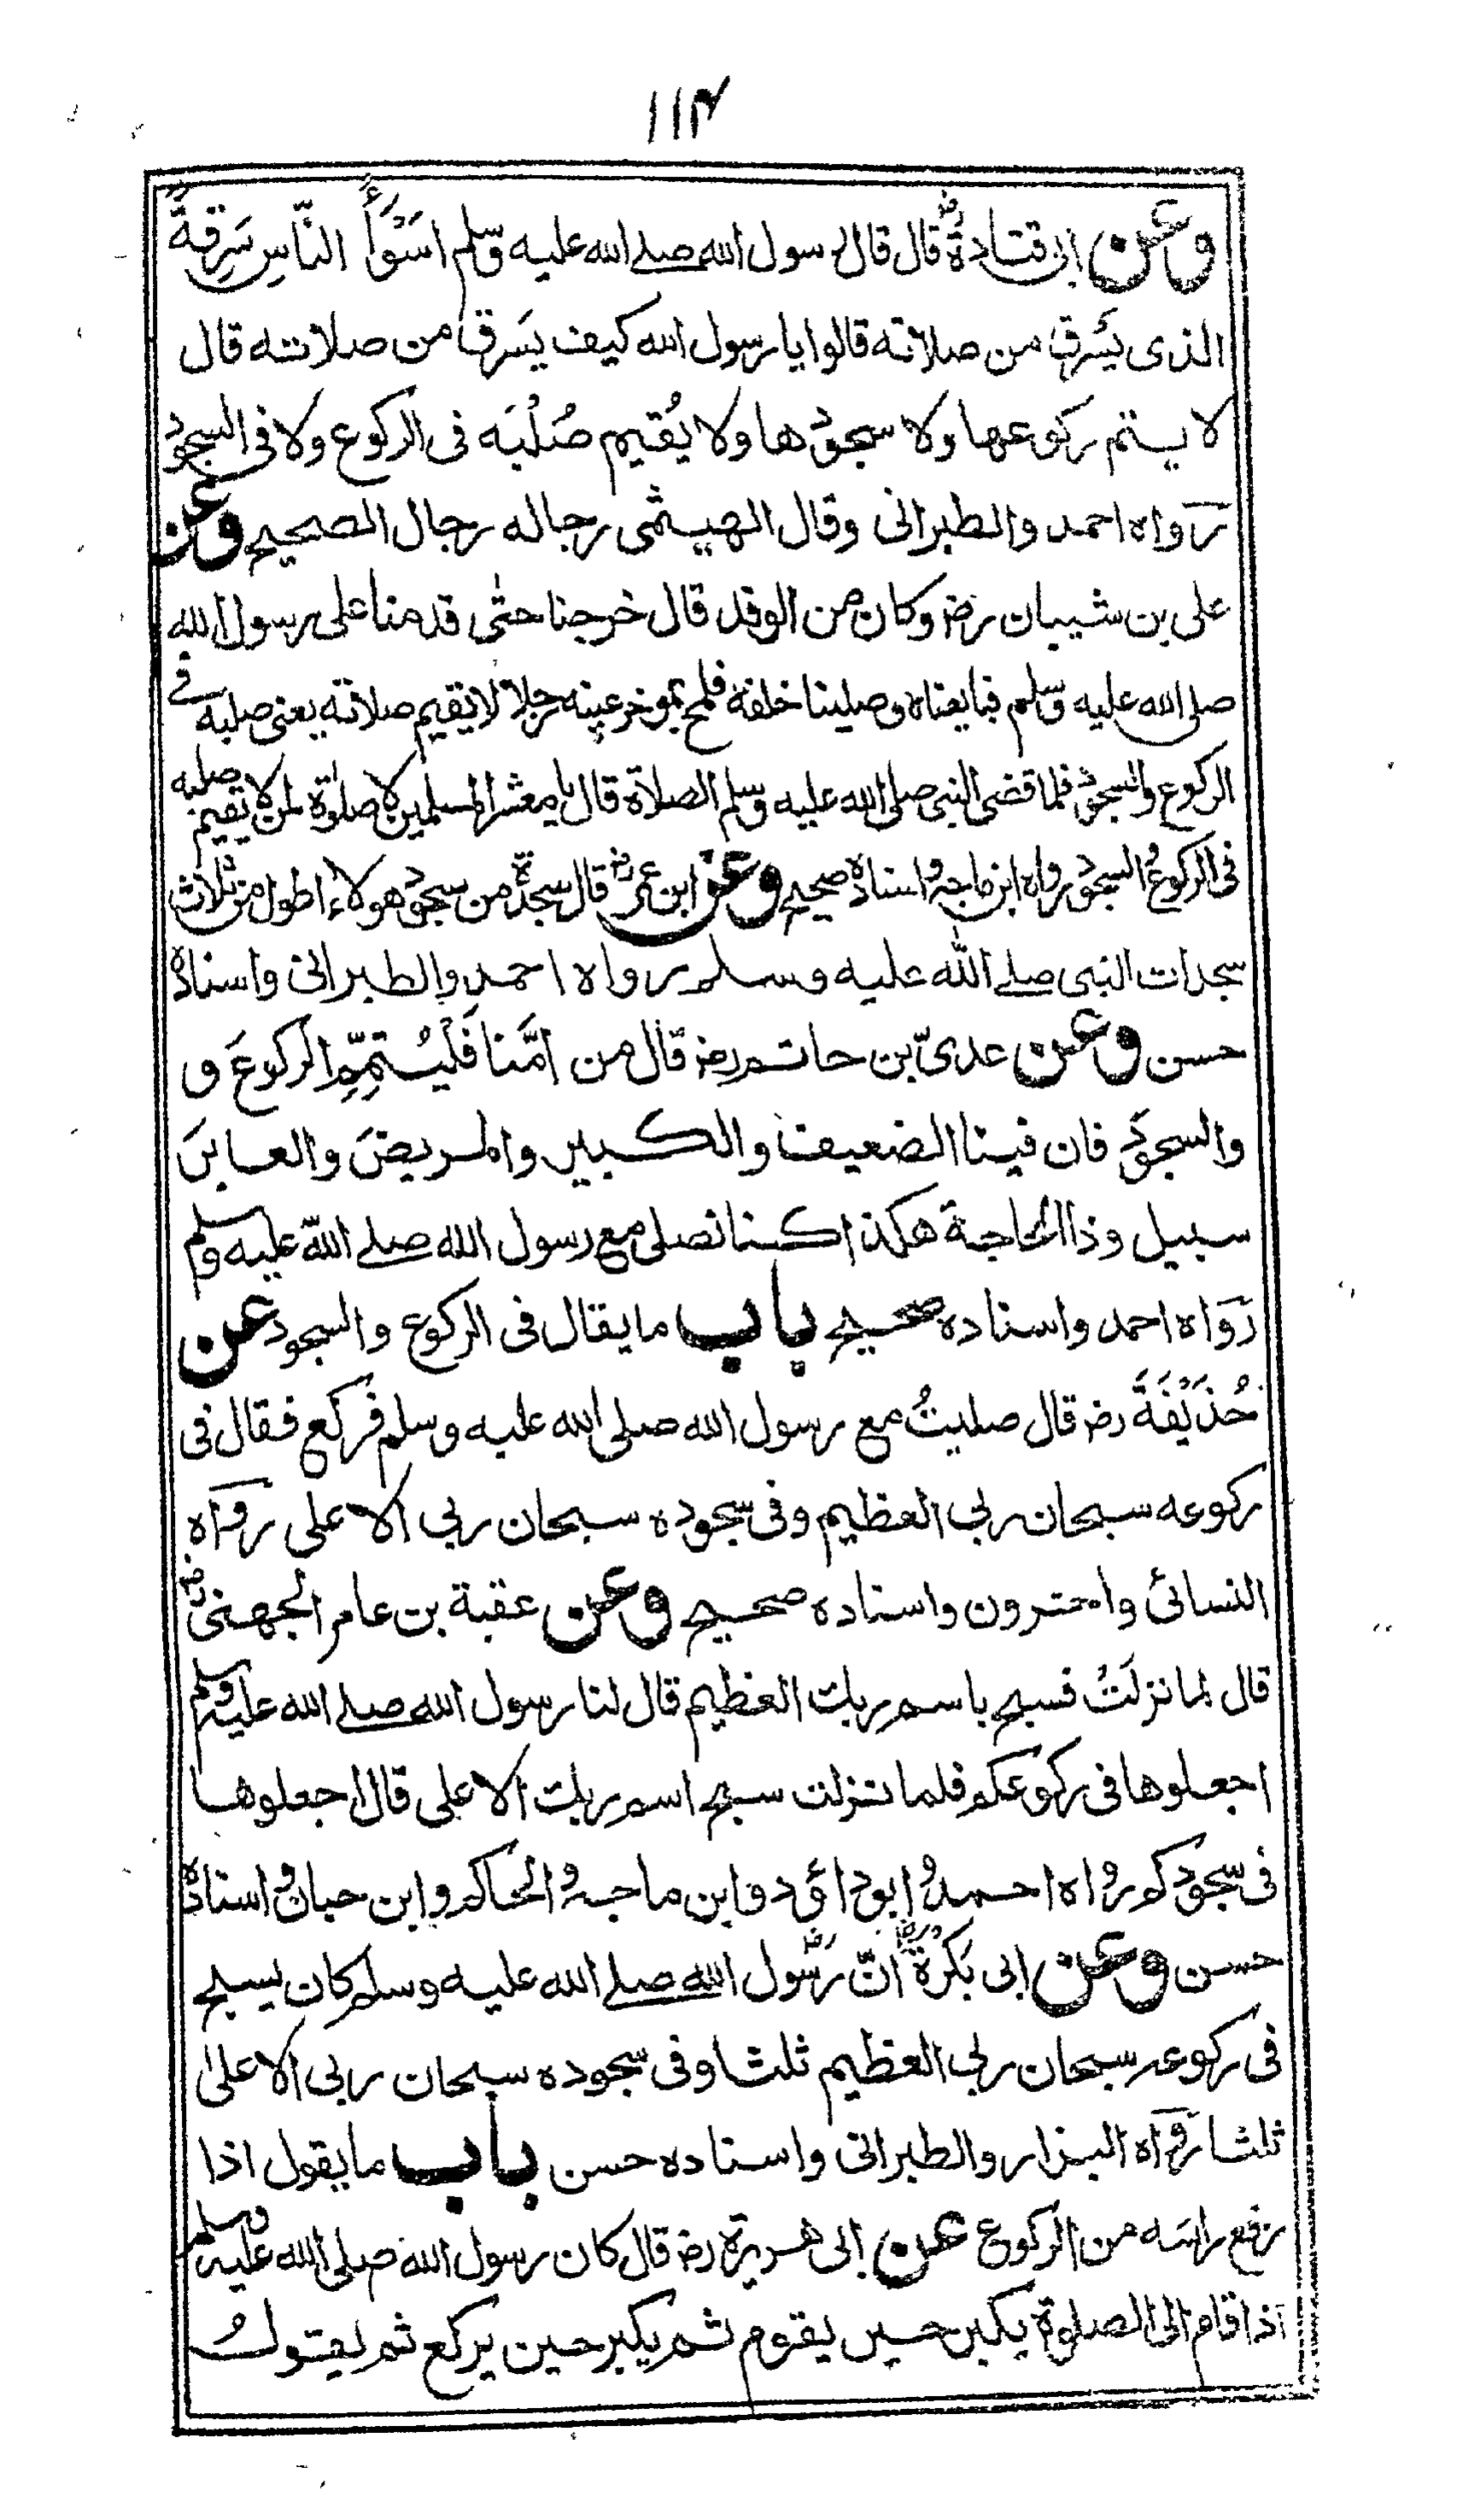 ۱۱۴
وعن ابى قتادة رض قال قال رسول الله صلے الله عليه وسلم اَسْوَأُ النّاسِ سَرِقةً
الذى يَسْرِق من صلاته قالوا يا رسول الله كيف يَسرق من صلاته قال
لا يتم ركوعها ولا سجودها ولا يُقيم صُلْبَه فى الركوع ولا فى السجود
رواه احمد والطبرانى وقال الهيثمى رجاله رجال الصحيح وعن
على بن شيبان رض وكان من الوفد قال خرجنا حتى قدمنا على رسول الله
صلى الله عليه وسلم فبايعناه وصلينا خلفه فلمح بمؤخر عينه رجلا لا يقيم صلاته يعنى صلبه فى
الركوع والسجود فلما قضى النبى صلى الله عليه وسلم الصلاة قال يا معشر المسلمين لا صلوة لمن لا يقيم صلبه
فى الركوع والسجود رواه ابن ماجه واسناده صحيح وعن ابن عمر رض قال سجدة من سجود هولاء اطول من ثلاث
سجدات النبى صلے الله عليه وسلم رواه احمد والطبرانى واسناده
حسن وعن عدىّ بن حاتم رض قال من امَّنا فَلْيُتمِّمِ الركوعَ و
والسجودَ فان فينا الضعيف والكبير والمريضَ والعابرَ
سبيل وذا الحاجة هكذا كنا نصلى مع رسول الله صلے الله عليه وسلم
رواه احمد واسناده صحيح باب ما يقال فى الركوع والسجود عن
حُذَيْفَةَ رض قال صليتُ مع رسول الله صلى الله عليه وسلم فركع فقال فى
ركوعه سبحان ربى العظيم وفى سجوده سبحان ربى الاعلى رواه
النسائى واخرون واسناده صحيح وعن عقبة بن عامر الجهنى رض
قال لما نزلَتْ فسبح باسم ربك العظيم قال لنا رسول الله صلے الله عليه وسلم
اجعلوها فى ركوعكم فلما نزلت سبح اسم ربك الاعلى قال اجعلوها
فى سجودكم رواه احمد وابو داؤد وابن ماجه والحاكم وابن حبان واسناده
حسن وعن ابى بَكْرَةَ رض انّ رَسُول الله صلے الله عليه وسلم كان يسبح
فى ركوعه سبحان ربى العظيم ثلثا وفى سجوده سبحان ربى الاعلىٰ
ثلثا رواه البزار والطبرانى واسناده حسن باب ما يقول اذا
رفع راسه من الركوع عن ابى هريرة رض قال كان رسول الله صلى الله عليه وسلم
اذا قام الى الصلوة يكبر حين يقوم ثم يكبر حين يركع ثم يقولُ